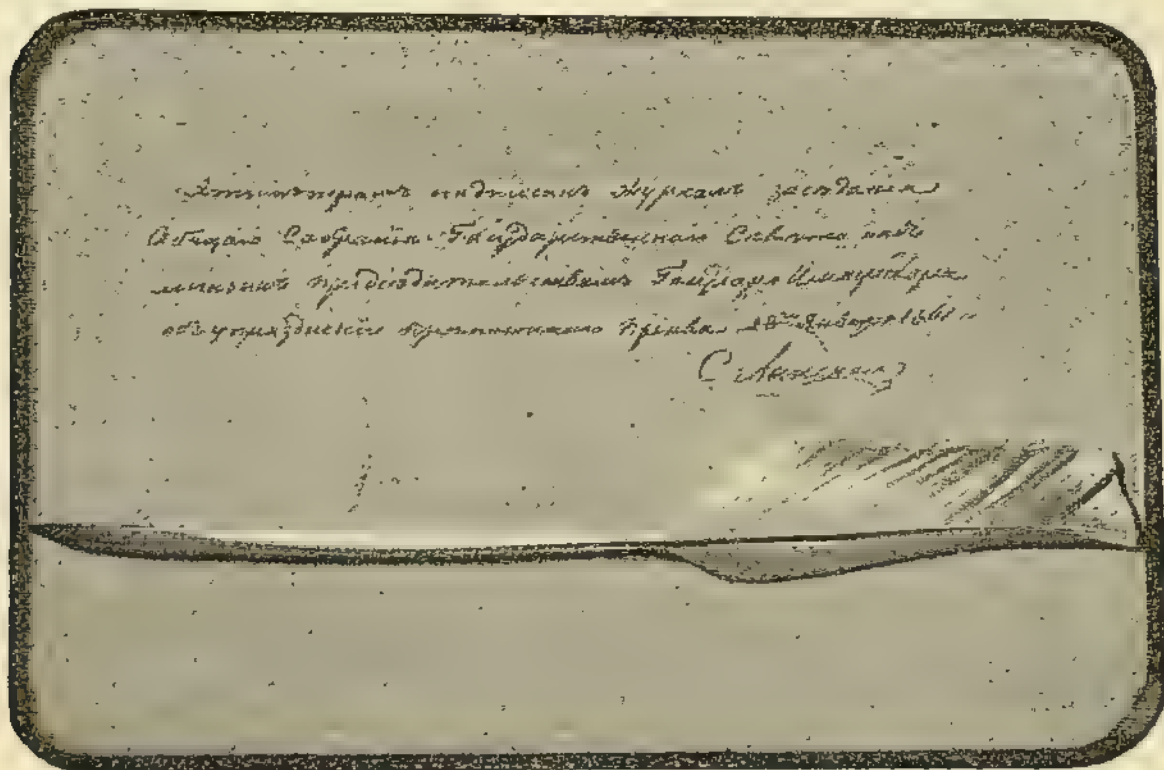 Этимъ перомъ подписанъ Журналъ засѣданія
Общаго Собранія Государственнаго Совѣта подъ
личнымъ предсѣдательствомъ Государя Императора
объ упраздненіи крѣпостнаго права 28го Января 1861 г.
С Ланской